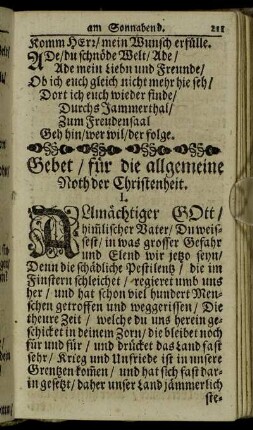 am Sonnabend. 211
Komm HErr/mein Wunsch erfülle.
ADe/du schnöde Welt/Ade/
Ade mein Liebn und Freunde/
Ob ich euch gleich nicht mehr hie seh/
Dort ich euch wieder finde/
Durchs Jammerthal/
Zum Freudensaal
Geh hin/wer wil/der folge.
Gebet/für die allgemeine
Noth der Christenheit.
I.
ALlmächtiger GOtt/
him̃lischer Vater/Du weis-
sest/in was grosser Gefahr
und Elend wir jetzo seyn/
Denn die schädliche Pestilentz/die im
Finstern schleichet/regieret umb uns
her/und hat schon viel hundert Men-
schen getroffen und weggerissen/Die
theure Zeit/welche du uns herein ge-
schicket in deinem Zorn/die bleibet noch
für und für/und drücket das Land fast
sehr/Krieg und Unfriede ist in unsere
Grentzen kom̃en/und hat sich fast dar-
in gesetzt/daher unser Land jämmerlich
ste-